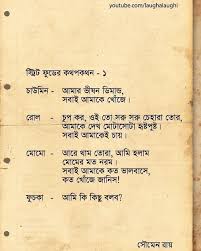 youtube.com/laughalaughi
স্ট্রিট ফুডের কথপকথন - ১
চাউমিন - আমার ভীষন ডিমান্ড,
সবাই আমাকে খোঁজে।
রোল - চুপ কর, ওই তো সরু সরু চেহারা তোর,
আমাকে দেখ মোটাসোটা হৃষ্টপুষ্ট।
সবাই আমাকেই চায়।
মোমো - আরে থাম তোরা, আমি হলাম
মোমের মত নরম।
সবাই আমাকে কত ভালবাসে,
কত খোঁজে জানিস!
ফুচকা - আমি কি কিছু বলব?
সৌমেন রায়